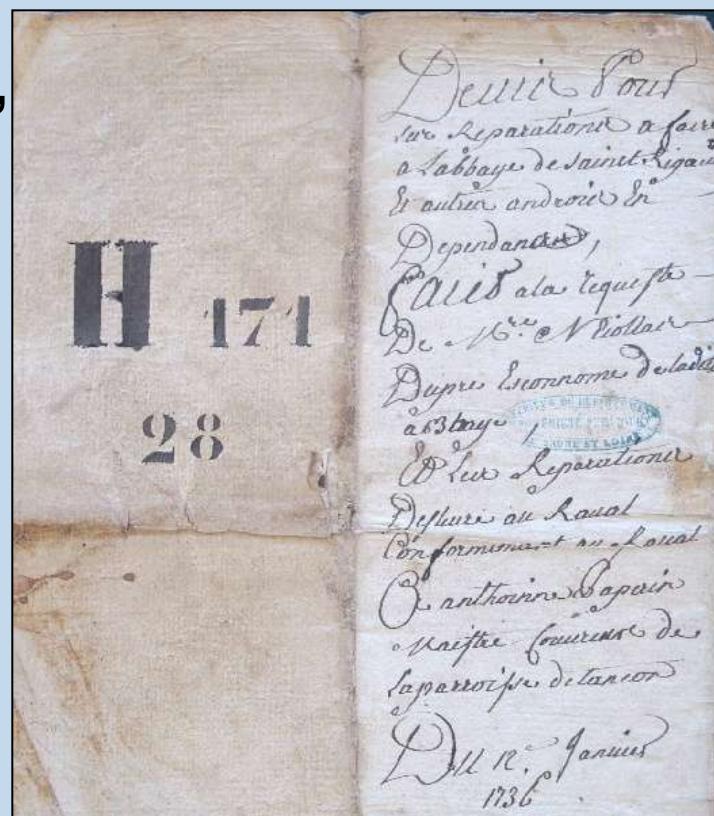 H 171
28
Devis Pour
les Reparations a faire
a Labbaye de Sainct Rigaud
Et autres androis En
Dependances,
Faits a la requeste
De Mre
Dupre Esconnome de ladit
abbaye
Et les Reparations
au Raval
Conformement au Raval
anthoinne Paperin
Maistre Couvreur de
Laparroisse detancon
Du 12e Janvier
1736